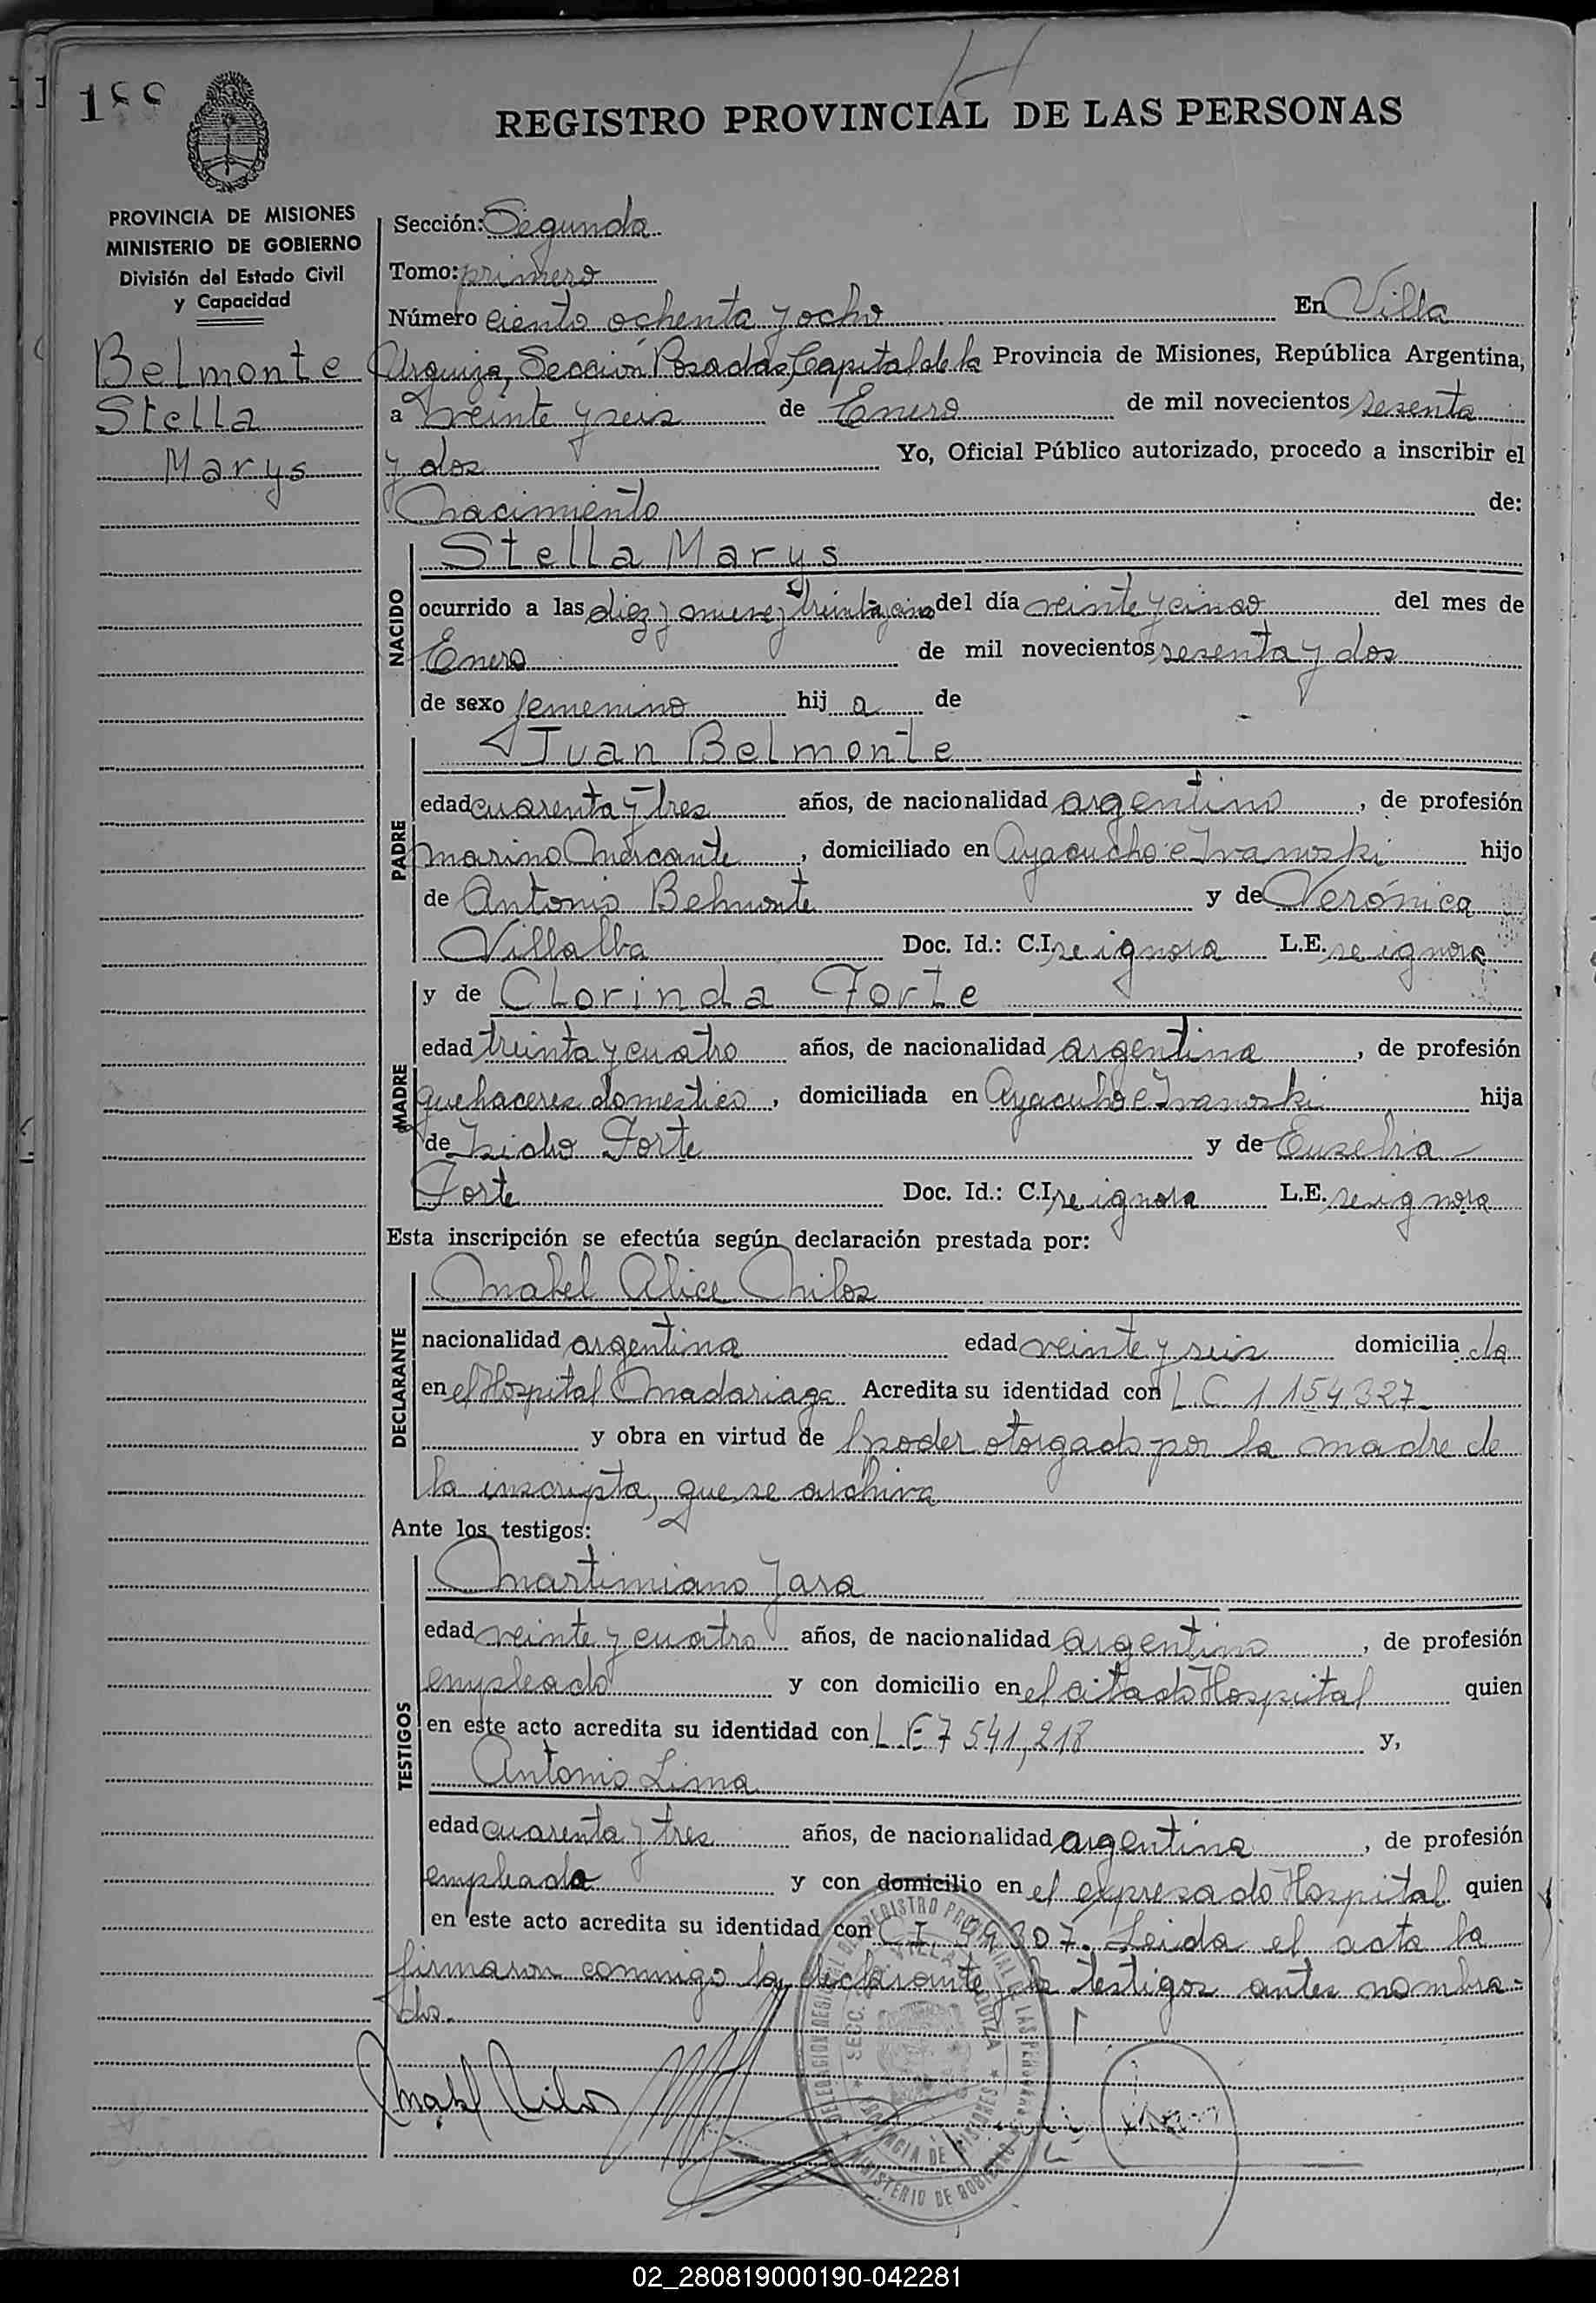 188
REGISTRO PROVINCIAL DE LAS PERSONAS
PROVINCIA DE MISIONES
MINISTERIO DE GOBIERNO
División del Estado Civil
y Capacidad
Belmonte
Stella
Marys
Sección: Segunda
Tomo: primero
Número ciento ochenta y ocho En Villa
Urquiza, Sección Posadas, Capital de la Provincia de Misiones, República Argentina,
a veinte y seis de Enero de mil novecientos sesenta
y dos Yo, Oficial Público autorizado, procedo a inscribir el
Nacimiento de:
NACIDO
Stella Marys
ocurrido a las diez y nueve y treinta y cinco del día veinte y cinco del mes de
Enero de mil novecientos sesenta y dos
de sexo femenino hij a de
PADRE
Juan Belmonte
edad cuarenta y tres años, de nacionalidad argentino, de profesión
marino Mercante, domiciliado en Ayacucho e Ivanoski hijo
de Antonio Belmonte y de Verónica
Villalba Doc. Id.: C.I. se ignora L.E. se ignora
MADRE
y de Clorinda Forte
edad treinta y cuatro años, de nacionalidad argentina, de profesión
quehaceres domestico, domiciliada en Ayacuho e Ivanoski hija
de Isidro Forte y de Eusebia
Forte Doc. Id.: C.I. se ignora L.E. se ignora
Esta inscripción se efectúa según declaración prestada por:
DECLARANTE
Mabel Alice Milos
nacionalidad argentina edad veinte y seis domicilia da
en el Hospital Madariaga Acredita su identidad con L.C 1.154.327
y obra en virtud de poder otorgado por la madre de
la inscripta, que se archiva
Ante los testigos:
TESTIGOS
Martimiano Jara
edad veinte y cuatro años, de nacionalidad argentino, de profesión
empleado y con domicilio en el citado Hospital quien
en este acto acredita su identidad con L.E 7541,218 y,
Antonio Lima
edad cuarenta y tres años, de nacionalidad argentina, de profesión
empleada y con domicilio en el expresado Hospital quien
en este acto acredita su identidad con C I. 59.307. Leida el acta la
firmaron conmigo la declarante y los testigos antes nombra=
dos.
Mabel Milos
DELEGACION REGIONAL DEL REGISTRO PROVINCIAL DE LAS PERSONAS
SECC. VILLA URQUIZA
PROVINCIA DE MISIONES
MINISTERIO DE GOBIERNO
02_280819000190-042281